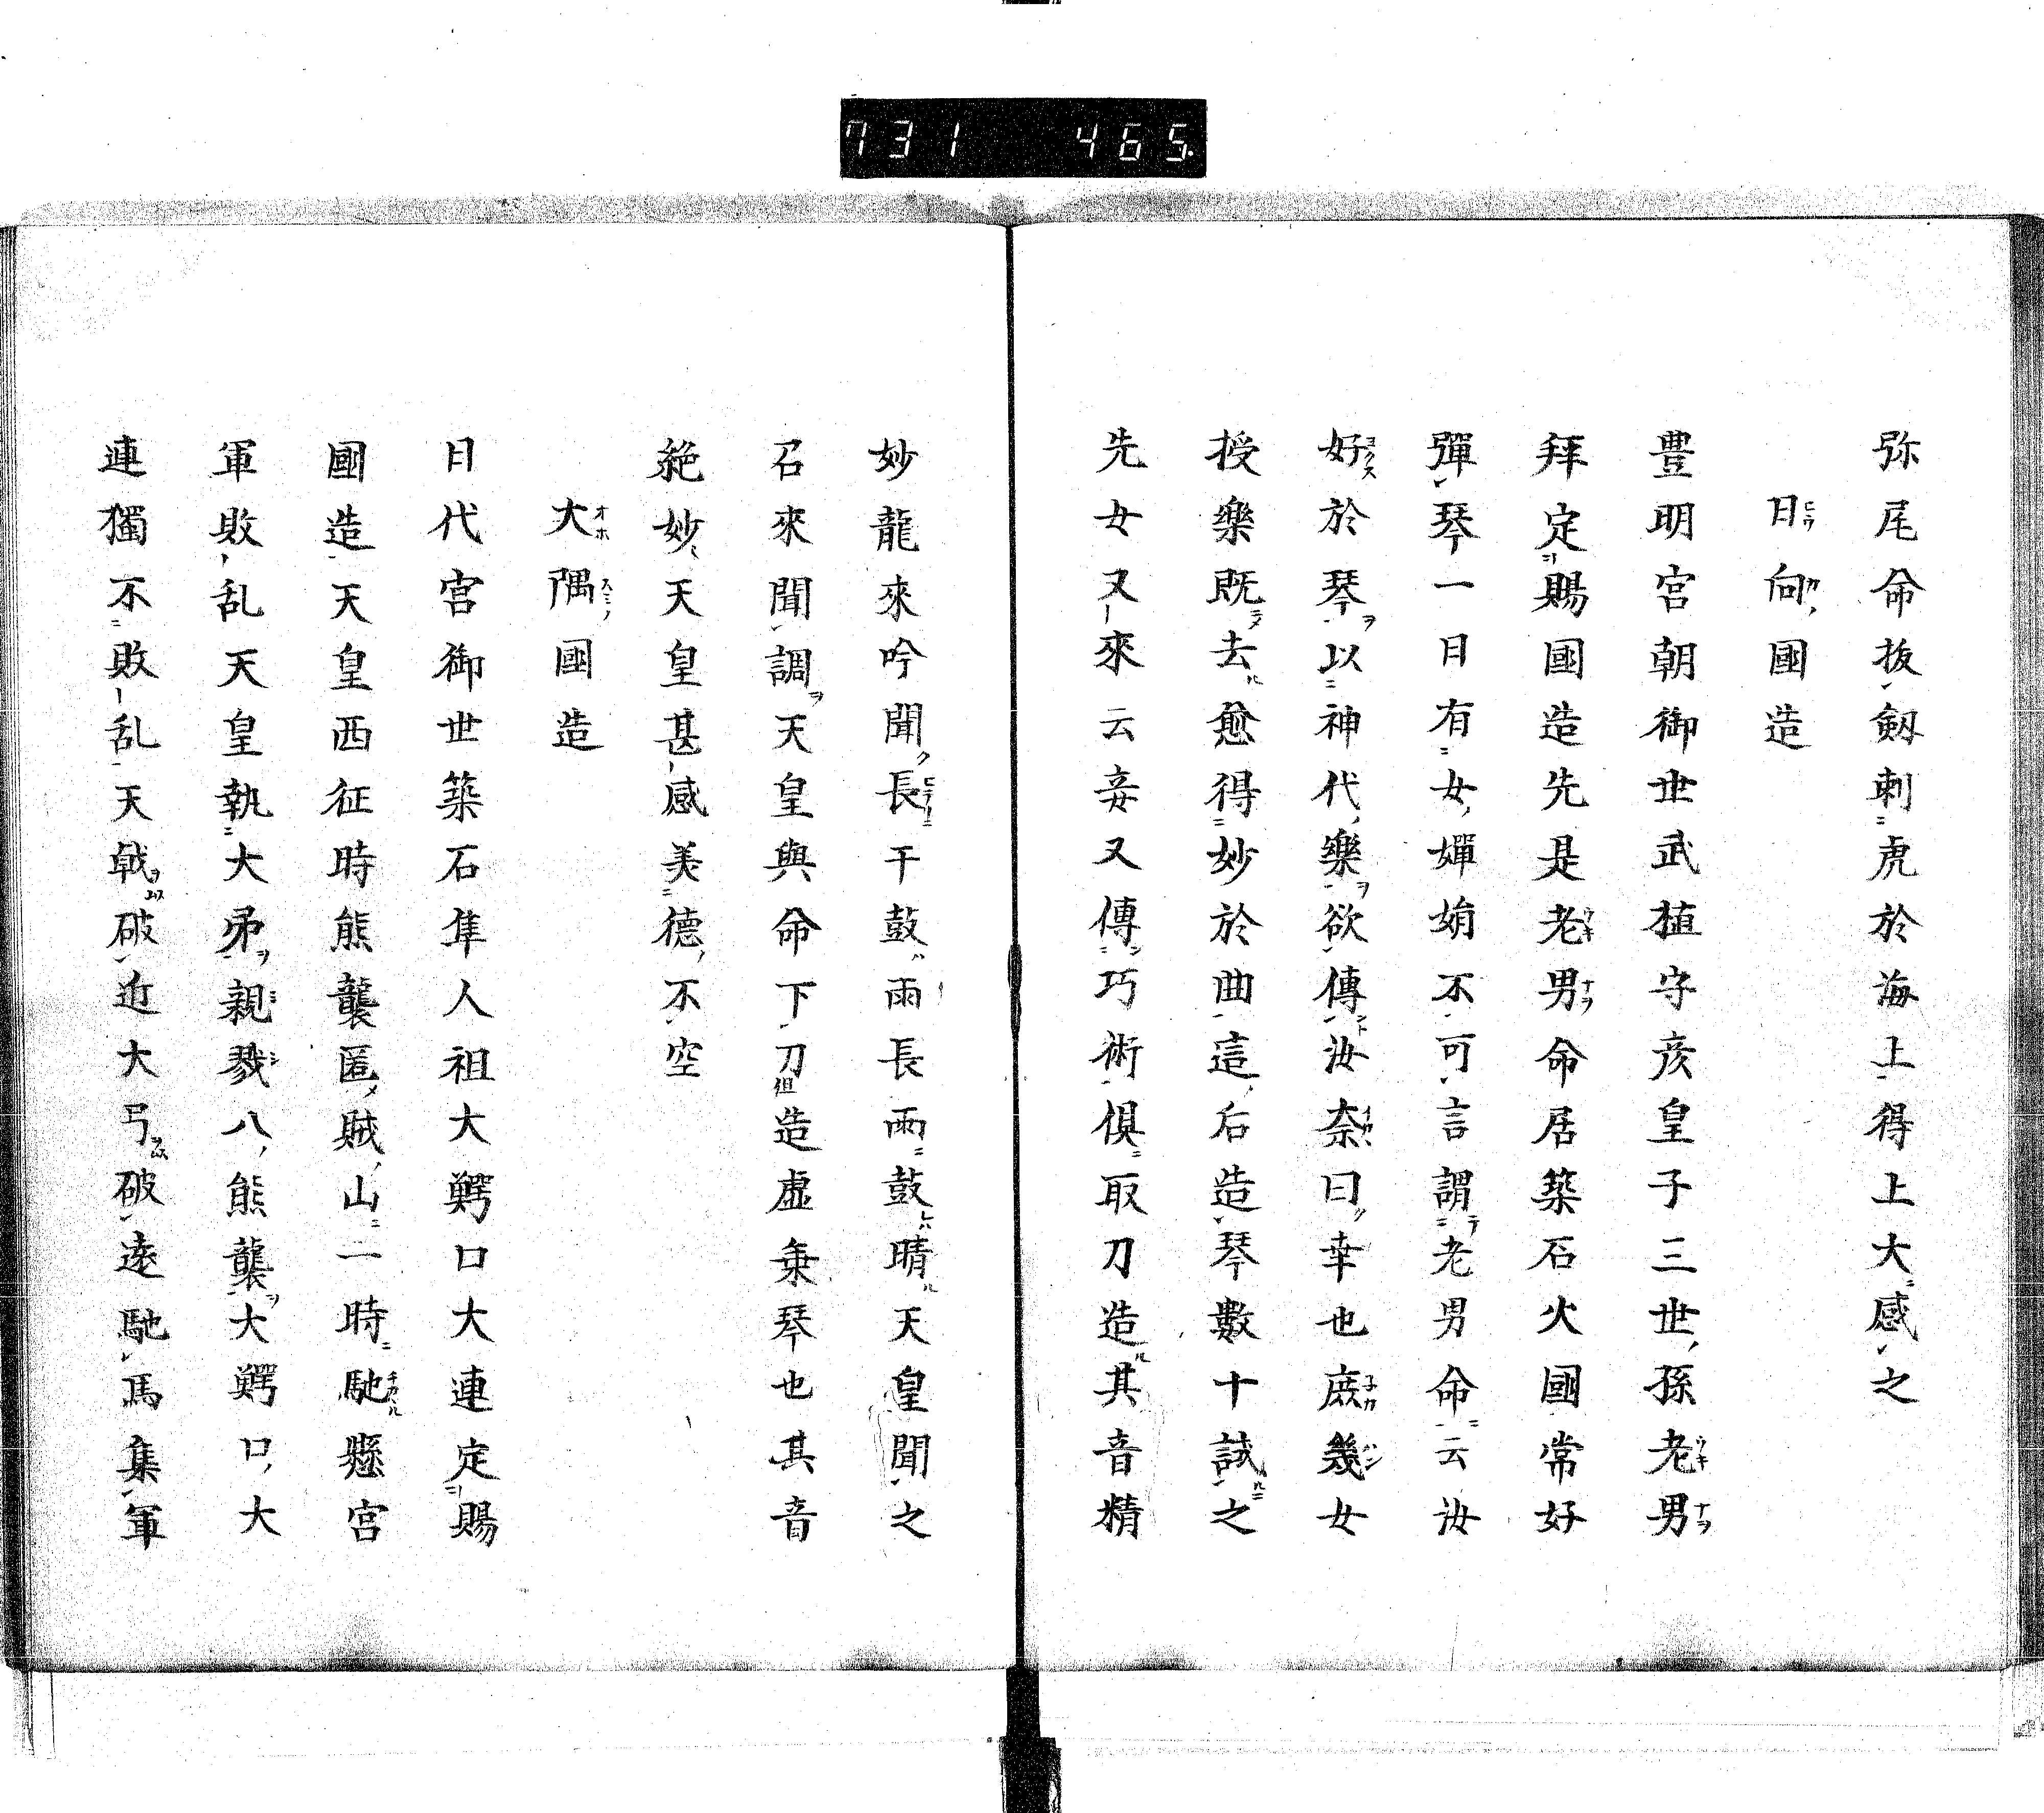 731 465.
弥尾命抜剱刺虎於海上得上大感之
日向國造
豊明宮朝御世武植守彦皇子三世孫老男
拜定賜國造先是老男命居築石火國常好
彈琴一日有女嬋娟不可言謂老男命云汝
好於琴以神代樂欲傳汝奈曰幸也庶幾女
授樂既去愈得妙於曲這后造琴數十試之
先女又來云妾又傳巧術倶取刀造其音精
妙龍來吟聞長干鼓雨長雨鼓晴天皇聞之
召來聞調天皇與命下刀但造虛乗琴也其音
絶妙天皇甚感美德不空
大隅國造
日代宮御世築石隼人祖大鰐口大連定賜
國造天皇西征時熊襲匿賊山一時馳懸宮
軍敗乱天皇執大矛親戮八熊襲大鰐口大
連獨不敗乱天戟破近大弓破遠馳馬集軍